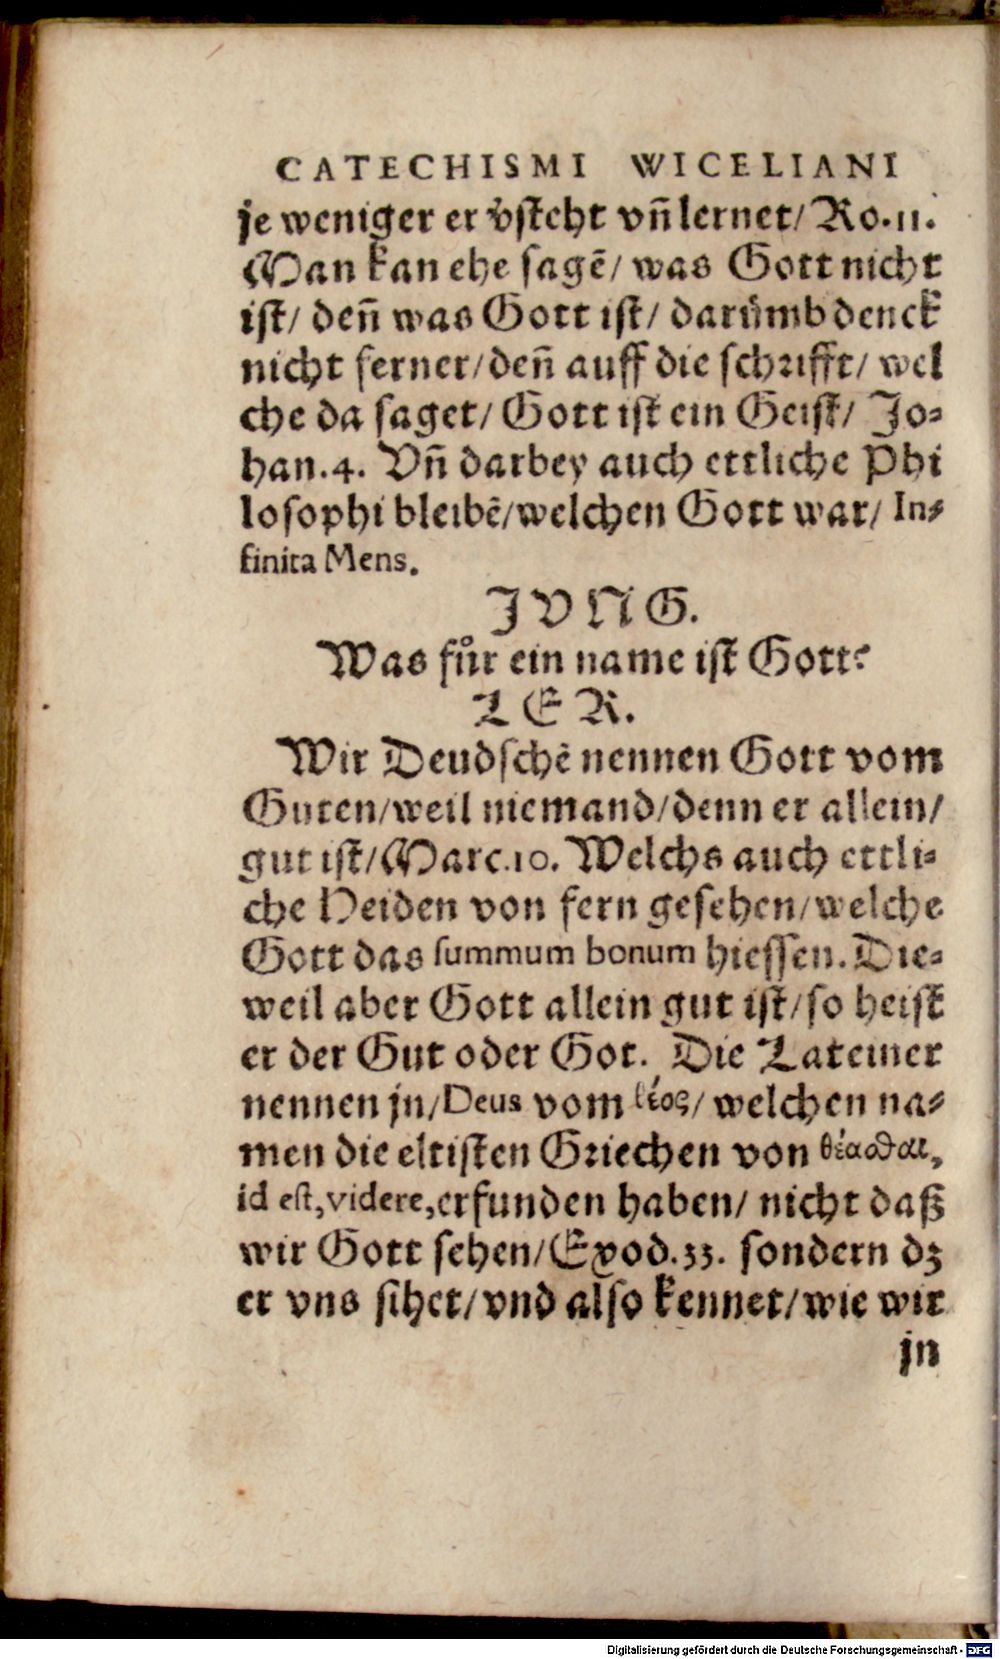 CATECHISMI WICELIANI
je weniger er v̄steht vn̄ lernet/ Ro.11.
Man kan ehe sagē/ was Gott nicht
ist/ den̄ was Gott ist/ darümb denck
nicht ferner/ den̄ auff die schrifft/ wel
che da saget/ Gott ist ein Geist/ Jo-
han.4. Vn̄ darbey auch ettliche Phi
losophi bleibē/ welchen Gott war/ In-
finita Mens.
JVNG.
Was fůr ein name ist Gott?
LER.
Wir Deudschē nennen Gott vom
Guten/ weil niemand/ denn er allein/
gut ist/ Marc.10. Welchs auch ettli-
che Heiden von fern gesehen/ welche
Gott das summum bonum hiessen. Die-
weil aber Gott allein gut ist/ so heist
er der Gut oder Got. Die Lateiner
nennen jn/ Deus vom θέος/ welchen na-
men die eltisten Griechen von θέασθαι,
id est, videre, erfunden haben/ nicht daß
wir Gott sehen/ Exod.33. sondern dz
er vns sihet/ vnd also kennet/ wie wir
jn
Digitalisierung gefördert durch die Deutsche Forschungsgemeinschaft - DFG